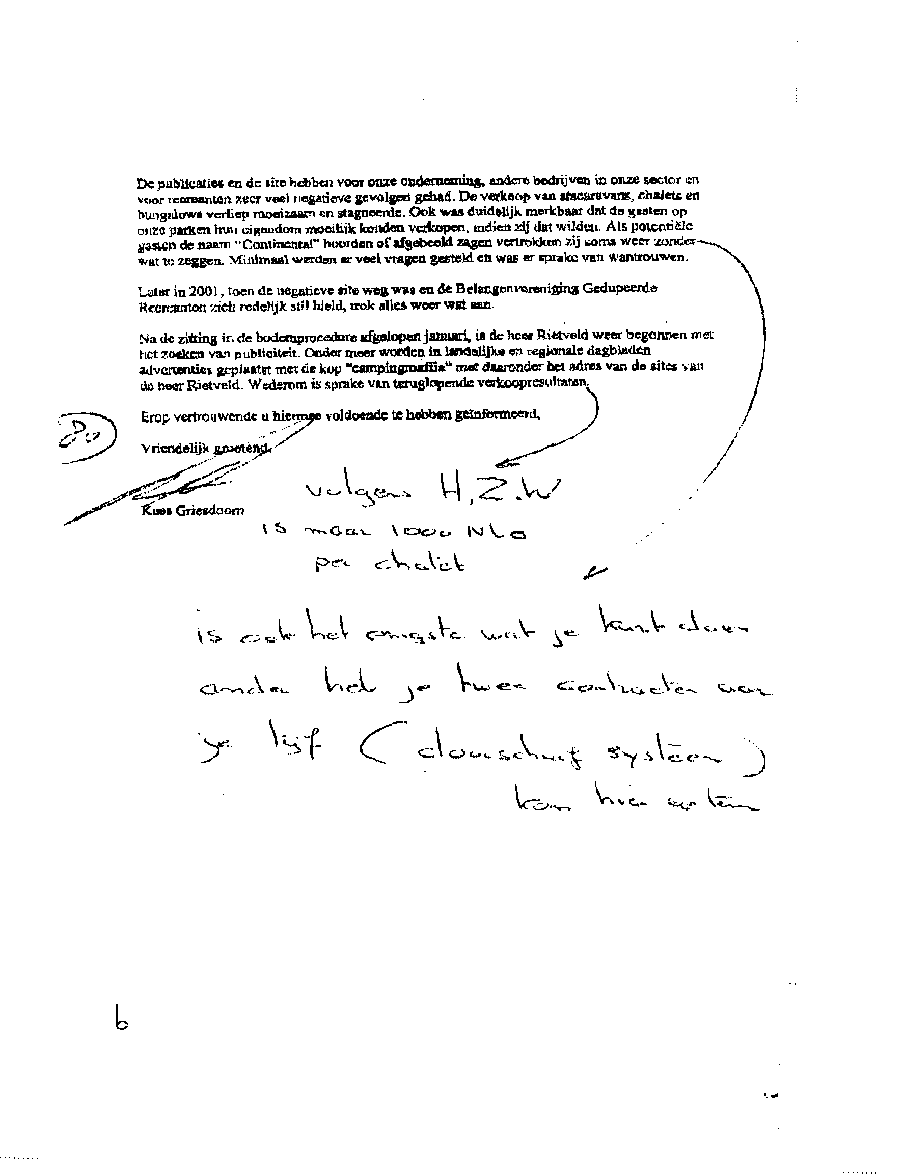 De publicaties en de site hebben voor onze onderneming, andere bedrijven in onze sector en
voor recreanten zeer veel negatieve gevolgen gehad. De verkoop van stacaravans, chalets en
bungalows verliep moeizaam en stagneerde. Ook was duidelijk merkbaar dat de gasten op
onze parken hun eigendom moeilijk konden verkopen, indien zij dat wilden. Als potentiële
gasten de naam "Continental" hoorden of afgebeeld zagen vertrokken zij soms weer zonder
wat te zeggen. Minimaal werden er veel vragen gesteld en was er sprake van wantrouwen.
Later in 2001, toen de negatieve site weg was en de Belangenvereniging Gedupeerde
Recreanten zich redelijk stil hield, trok alles weer wat aan.
Na de zitting in de bodemprocedure afgelopen januari, is de heer Rietveld weer begonnen met
het zoeken van publiciteit. Onder meer worden in landelijke en regionale dagbladen
advertenties geplaatst met de kop "campingmaffia" met daaronder het adres van de sites van
de heer Rietveld. Wederom is sprake van teruglopende verkoopresultaten.
Erop vertrouwende u hiermee voldoende te hebben geïnformeerd,
80
Vriendelijk groetend,
Koos Griesdoorn
volgens H.Z.W
is maar 1000 NLG
per chalet
is ook het engste wat je kunt doen
ander heb je twee contracten aan
je lijf (doorschuif systeem)
kom hier op terug
6